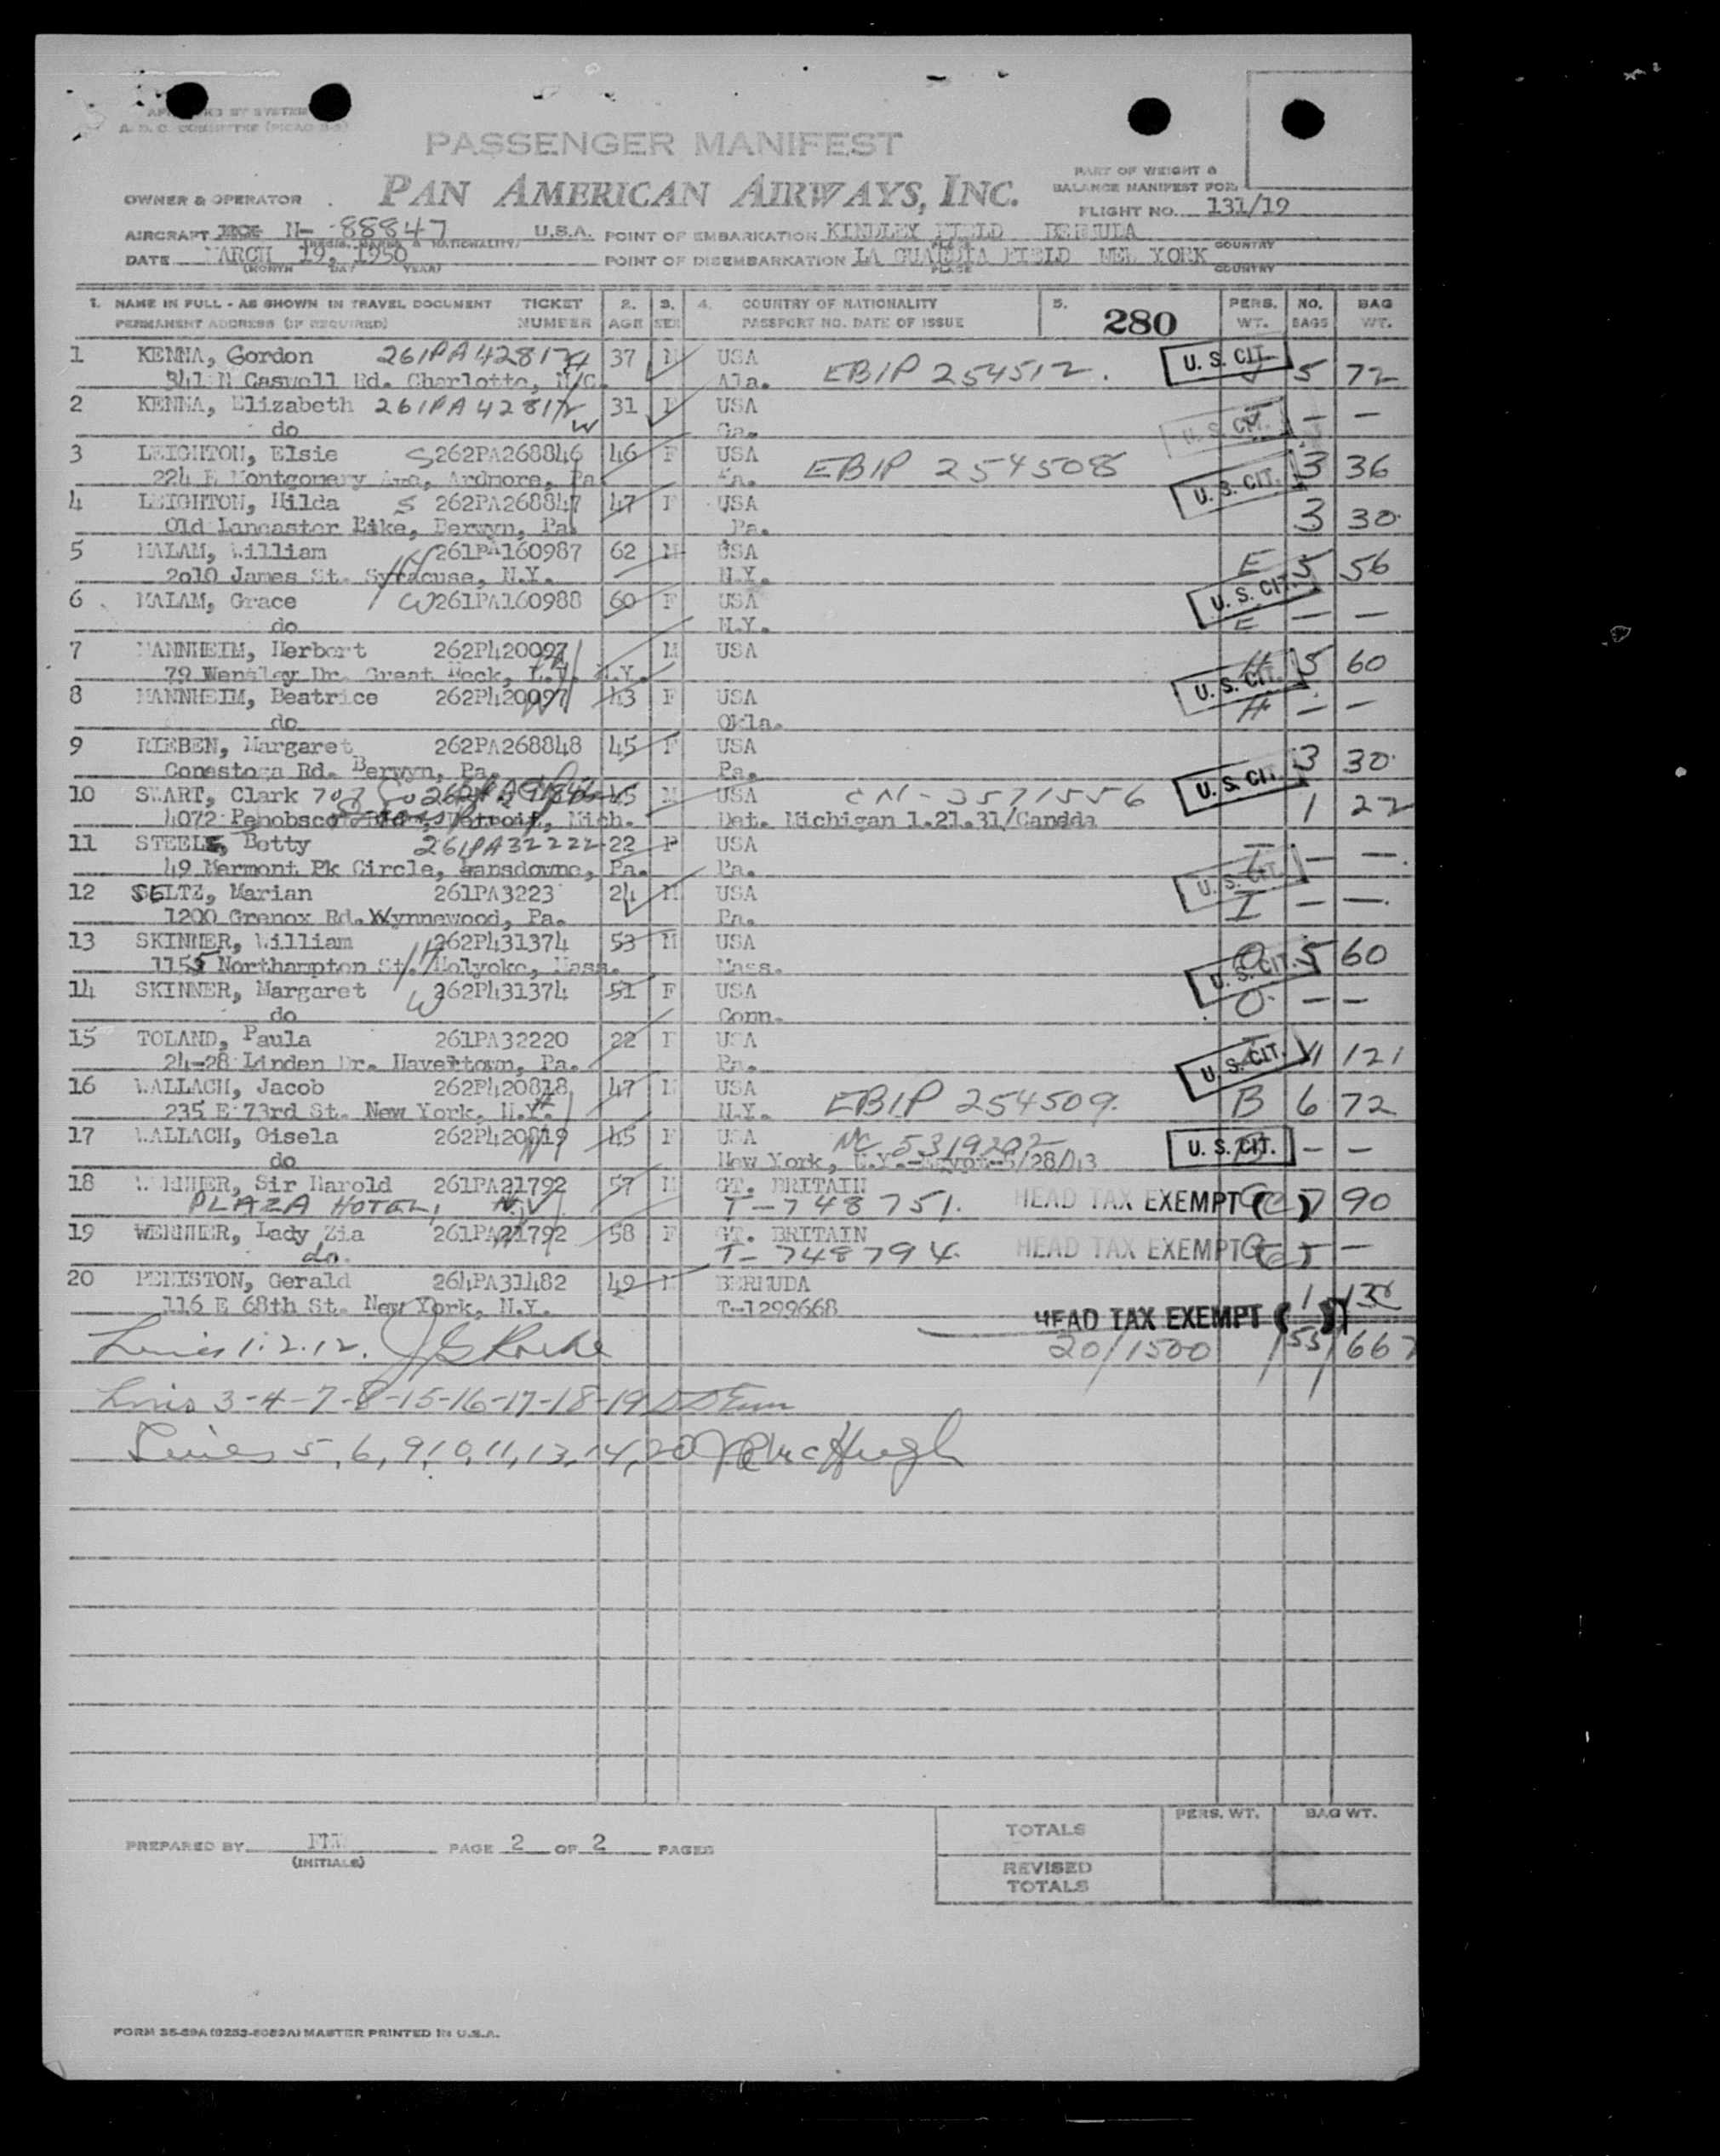 A. D. C. COMMITTEE
PASSENGER MANIFEST
PART OF WEIGHT &
OWNER & OPERATOR PAN AMERICAN AIRWAYS, INC. BALANCE MANIFEST FOR
FLIGHT NO. 131/19
AIRCRAFT N- 88847 U.S.A. POINT OF EMBARKATION KINDLEY FIELD BERMUDA
COUNTRY
DATE MARCH 19, 1950 POINT OF DISEMBARKATION LA GUARDIA FIELD NEW YORK
(MONTH DAY YEAR) PLACE COUNTRY
1. NAME IN FULL - AS SHOWN IN TRAVEL DOCUMENT TICKET 2. 3. 4. COUNTRY OF NATIONALITY 5. 280 PERS. NO. BAG
PERMANENT ADDRESS (IF REQUIRED) NUMBER AGE SEX PASSPORT NO. DATE OF ISSUE WT. BAGS WT.
1 KENNA, Gordon 261PA42817 H 37 M USA U. S. CIT.
341 N Caswell Rd. Charlotte, N/C. Ala. EBIP 254512. 5 72
2 KENNA, Elizabeth 261PA42817 W 31 F USA U. S. CIT. — —
do Ga.
3 LEIGHTON, Elsie S 262PA268846 46 F USA EBIP 254508 3 36
224 E Montgomery Ave, Ardmore, Pa. Pa. U. S. CIT.
4 LEIGHTON, Hilda S 262PA268847 47 F USA
Old Lancaster Pike, Berwyn, Pa. Pa. 3 30
5 MALAM, William H 261PA160987 62 M USA E 5 56
2010 James St. Syracuse, N.Y. N.Y. U. S. CIT.
6 MALAM, Grace W 261PA160988 60 F USA
do N.Y. E — —
7 MANNHEIM, Herbert 262P420097 M USA H 5 60
79 Wensley Dr. Great Neck, L.I. N.Y. U. S. CIT.
8 MANNHEIM, Beatrice 262P420097 W 43 F USA H — —
do Okla.
9 RIEBEN, Margaret 262PA268848 45 F USA 3 30
Conestoga Rd. Berwyn, Pa. Pa. U. S. CIT.
10 Clark 707 45 M USA CN-3571556 1 22
4072 Penobscot Detroit, Mich. Det. Michigan 1.21.31/Candda
11 STEELE, Betty 261PA32222 22 F USA I — —
49 Mermont Pk Circle, Lansdowne, Pa. Pa. U. S. CIT.
12 SELTZ, Marian 261PA3223 24 M USA
1200 Grenox Rd. Wynnewood, Pa. Pa. I — —
13 SKINNER, William H 262P431374 53 M USA O 5 60
1155 Northampton St. Holyoke, Mass. Mass. U. S. CIT.
14 SKINNER, Margaret W 262P431374 51 F USA O — —
do Conn.
15 TOLAND, Paula 261PA32220 22 F USA 121
24-28 Linden Dr. Havertown, Pa. Pa. U. S. CIT.
16 WALLACH, Jacob 262P420818 47 M USA
235 E 73rd St. New York, N.Y. H N.Y. EBIP 254509. B 6 72
17 WALLACH, Gisela 262P420819 W 45 F USA NC 5319202 U. S. CIT. — —
do New York, N.Y.-Egypt-5/28/43
18 WERNHER, Sir Harold 261PA21792 57 M GT. BRITAIN HEAD TAX EXEMPT 7 90
PLAZA HOTEL, N.Y. T-748751.
19 WERNHER, Lady Zia 261PA21792 58 F GT. BRITAIN HEAD TAX EXEMPT —
do. T-748794.
20 PENISTON, Gerald 264PA31482 49 M BERMUDA 1
116 E 68th St. New York, N.Y. T-1299668 HEAD TAX EXEMPT
Lines 1.2.12. 20/1500 /55/667
Lines 3-4-7-8-15-16-17-18-19
Lines 5, 6, 9, 10, 11, 13, 14, 20 McHugh
PERS. WT. BAG WT.
TOTALS
PREPARED BY PAGE 2 OF 2 PAGES
(INITIALS)
REVISED
TOTALS
FORM 35-89A (0253-6089A) MASTER PRINTED IN U.S.A.